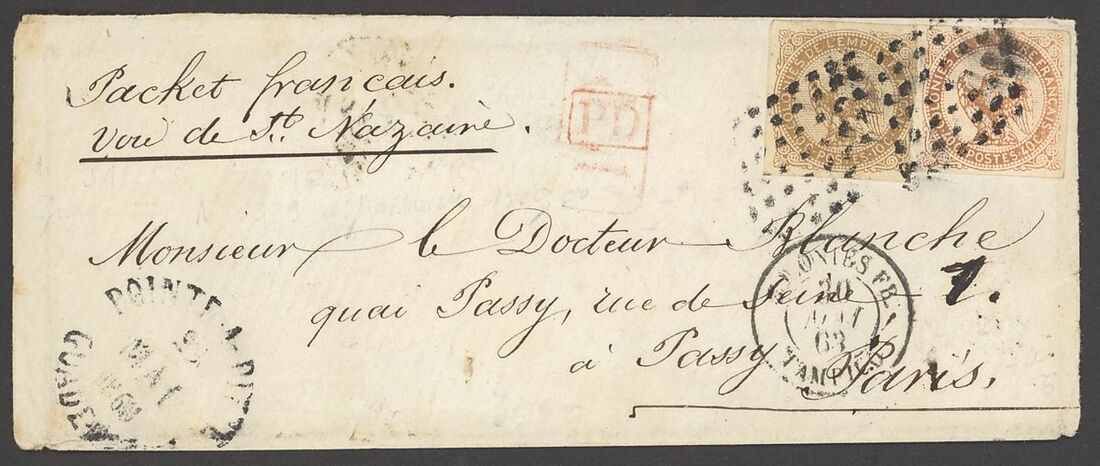 Packet français.
voie de St. Nazaire.
PD
COLONIES DE L'EMPIRE
POSTES 10
POSTES 40
Monsieur le Docteur Blanche
quai Passy, rue de Seine 1.
à Passy Paris.
COLONIES FR.
63
POINTE-A-PITRE
MAI